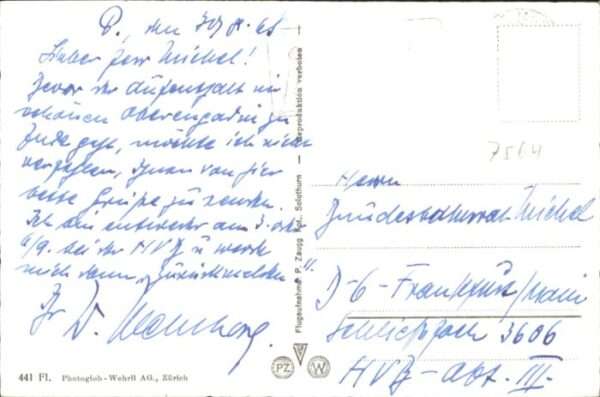 P., den 30.8.65
Lieber Herr Michel!
Bevor der Aufenthalt im
schönen Oberengadin zu
Ende geht, möchte ich nicht
Ihnen von hier
beste Grüße zu senden.
Ich bin entweder am 3. oder
6/9. bei der HVB u werde
mich dann zurückmelden
Ihr
Flugaufnahme P. Zaugg Solothurn — Reproduktion verboten
7564
Herrn
Bundesbahnrat Michel
D-6-Frankfurt/Main
Schließfach 3606
HVB-Abt. III.
PZ
W
441 Fl. Photoglob-Wehrli AG., Zürich